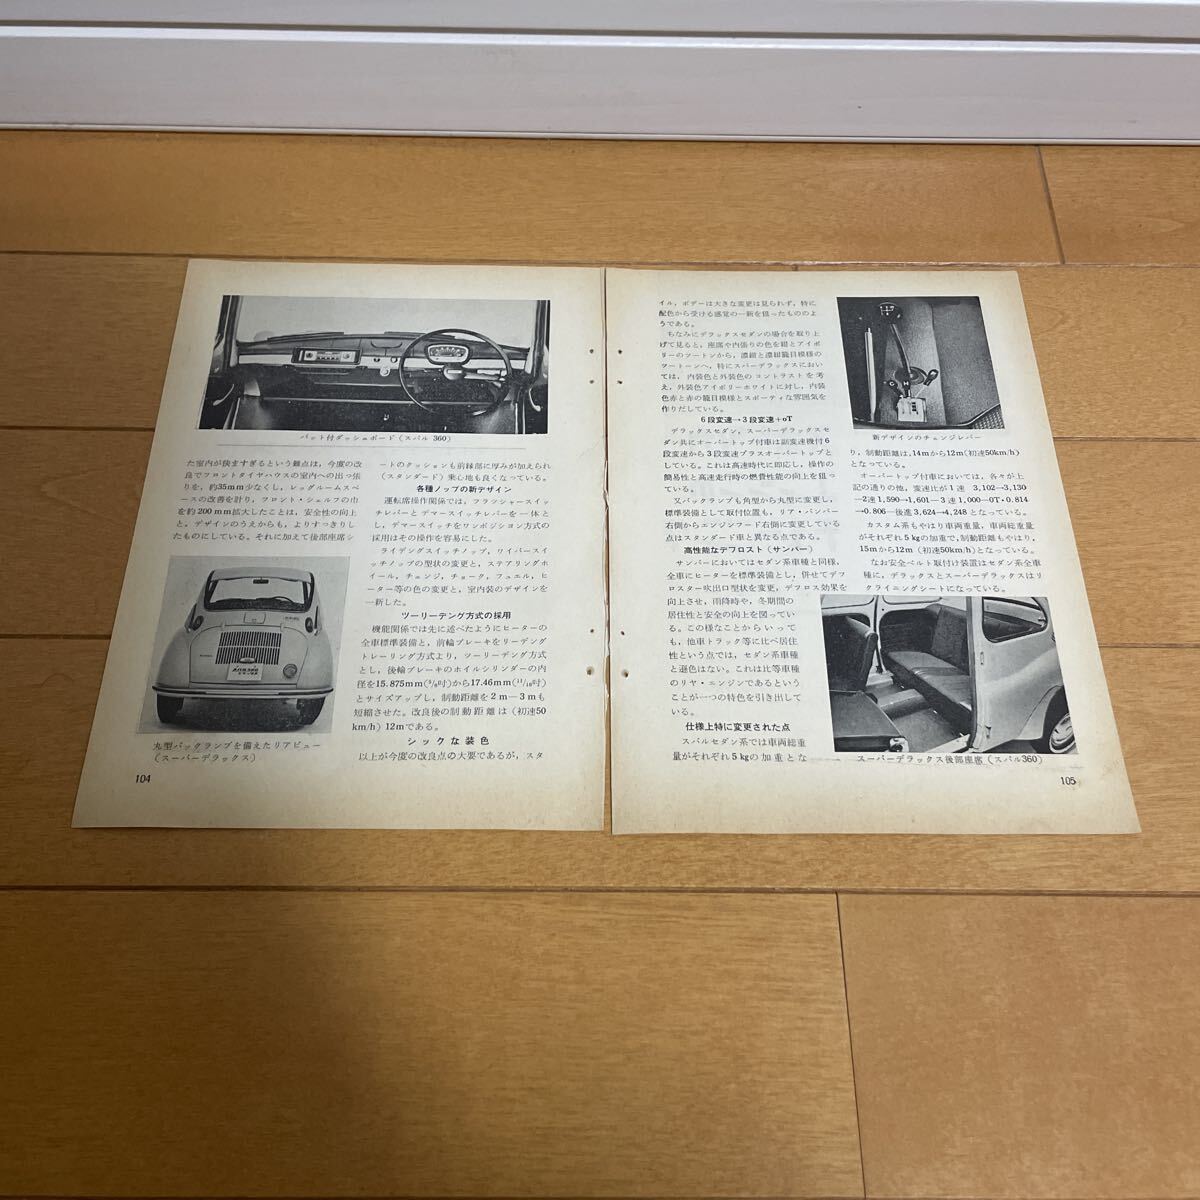 パット付ダッシュボード（スバル 360）
た室内が狭ますぎるという難点は，今度の改
良でフロントタイヤハウスの室内への出っ張
りを，約35mm少なくし，レッグルームスペ
ースの改善を計り，フロント・シェルフの巾
を約200mm拡大したことは，安全性の向上
と，デザインのうえからも，よりすっきりし
たものにしている。それに加えて後部座席シ
丸型バックランプを備えたリアビュー
（スーパーデラックス）
104
ートのクッションも前縁部に厚みが加えられ
（スタンダード）乗心地も良くなっている。
各種ノップの新デザイン
運転席操作関係では，フラッシャースイッ
チレバーとデマースイッチレバーを一体と
し，デマースイッチをワンポジション方式の
採用はその操作を容易にした。
ライデングスイッチノップ，ワイパースイ
ッチノップの型状の変更と，ステアリングホ
イール，チェンジ，チョーク，フュエル，ヒ
ーター等の色の変更と，室内装のデザインを
一新した。
ツーリーデング方式の採用
機能関係では先に述べたようにヒーターの
全車標準装備と，前輪ブレーキをリーデング
トレーリング方式より，ツーリーデング方式
とし，後輪ブレーキのホイルシリンダーの内
径を15.875mm（5/8吋）から17.46mm（11/16吋）
とサイズアップし，制動距離を2m―3mも
短縮させた。改良後の制動距離は（初速50
km/h）12mである。
シックな装色
以上が今度の改良点の大要であるが，スタ
イル，ボデーは大きな変更は見られず，特に
配色から受ける感覚の一新を狙ったもののよ
うである。
ちなみにデラックスセダンの場合を取り上
げて見ると，座席や内張りの色を紺とアイボ
リーのツートンから，濃紺と濃紺籠目模様の
ツートーンへ，特にスパーデラックスにおい
ては，内装色と外装色のコントラストを考
え，外装色アイボリーホワイトに対し，内装
色赤と赤の籠目模様とスポーティな雰囲気を
作りだしている。
6段変速→3段変速+oT
デラックスセダン，スーパーデラックスセ
ダン共にオーバートップ付車は副変速機付6
段変速から3段変速プラスオーバートップと
している。これは高速時代に即応し，操作の
簡易性と高速走行時の燃費性能の向上を狙っ
ている。
又バックランプも角型から丸型に変更し，
標準装備として取付位置も，リア・バンパー
右側からエンジンフード右側に変更している
点はスタンダード車と異なる点である。
高性能なデフロスト（サンバー）
サンバーにおいてはセダン系車種と同様，
全車にヒーターを標準装備とし，併せてデフ
ロスター吹出口型状を変更，デフロス効果を
向上させ，雨降時や，冬期間の
居住性と安全の向上を図ってい
る。この様なことからいって
も，他車トラック等に比べ居住
性という点では，セダン系車種
と遜色はない。これは比等車種
のリヤ・エンジンであるという
ことが一つの特色を引き出して
いる。
仕様上特に変更された点
スバルセダン系では車両総重
量がそれぞれ5kgの加重とな
新デザインのチェンジレバー
り，制動距離は，14mから12m（初速50km/h）
となっている。
オーバートップ付車においては，各々が上
記の通りの他，変速比が1速 3,102→3,130
―2速1,590→1,601―3速1,000―OT・0.814
→0.806―後進3,624→4,248となっている。
カスタム系もやはり車両重量，車両総重量
がそれぞれ5kgの加重で，制動距離もやはり，
15mから12m（初速50km/h）となっている。
なお安全ベルト取付け装置はセダン系全車
種に，デラックスとスーパーデラックスはリ
クライニングシートになっている。
スーパーデラックス後部座席（スバル360）
105